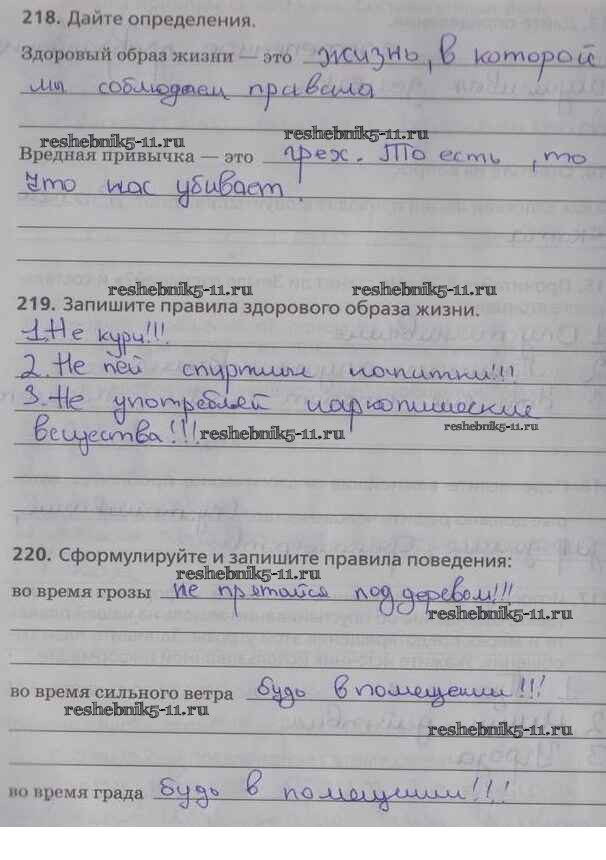 218. Дайте определения.
Здоровый образ жизни — это жизнь, в которой
мы соблюдаем правила
reshebnik5-11.ru reshebnik5-11.ru
Вредная привычка — это грех. То есть, то
что нас убивает!
reshebnik5-11.ru reshebnik5-11.ru
219. Запишите правила здорового образа жизни.
1. Не кури!!!
2. Не пей спиртные напитки!!!
3. Не употребляй наркотические
вещества!!! reshebnik5-11.ru reshebnik5-11.ru
220. Сформулируйте и запишите правила поведения:
reshebnik5-11.ru
во время грозы не прятайся под деревом!!!
reshebnik5-11.ru
во время сильного ветра будь в помещении!!!
reshebnik5-11.ru
reshebnik5-11.ru
во время града будь в помещении!!!